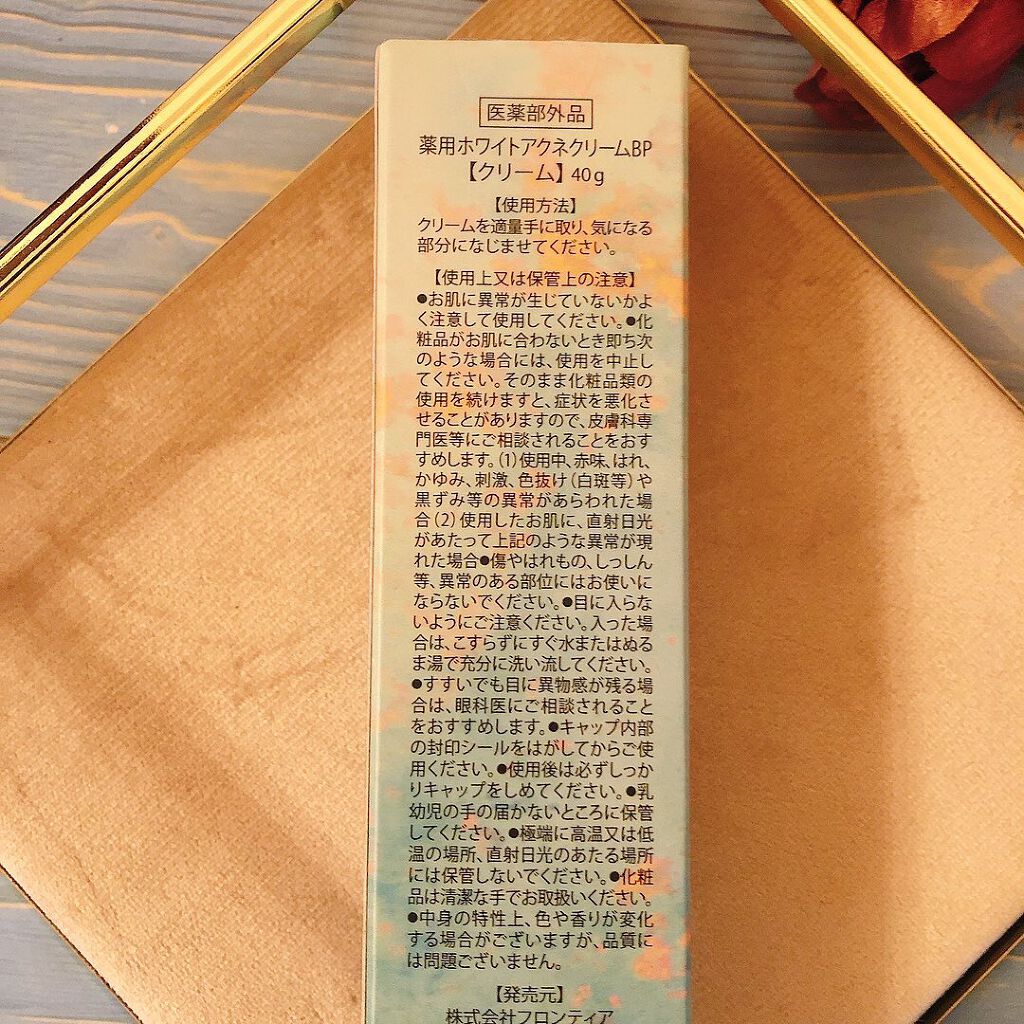 医薬部外品
薬用ホワイトアクネクリームBP
【クリーム】40g
【使用方法】
クリームを適量手に取り、気になる
部分になじませてください。
【使用上又は保管上の注意】
●お肌に異常が生じていないかよ
く注意して使用してください。●化
粧品がお肌に合わないとき即ち次
のような場合には、使用を中止し
てください。そのまま化粧品類の
使用を続けますと、症状を悪化さ
せることがありますので、皮膚科専
門医等にご相談されることをおす
すめします。(1)使用中、赤味、はれ、
かゆみ、刺激、色抜け(白斑等)や
黒ずみ等の異常があらわれた場
合(2)使用したお肌に、直射日光
があたって上記のような異常が現
れた場合●傷やはれもの、しっしん
等、異常のある部位にはお使いに
ならないでください。●目に入らな
いようにご注意ください。入った場
合は、こすらずにすぐ水またはぬる
ま湯で充分に洗い流してください。
●すすいでも目に異物感が残る場
合は、眼科医にご相談されること
をおすすめします。●キャップ内部
の封印シールをはがしてからご使
用ください。●使用後は必ずしっか
りキャップをしめてください。●乳
幼児の手の届かないところに保管
してください。●極端に高温又は低
温の場所、直射日光のあたる場所
には保管しないでください。●化粧
品は清潔な手でお取扱いください。
●中身の特性上、色や香りが変化
する場合がございますが、品質に
は問題ございません。
【発売元】
株式会社フロンティア